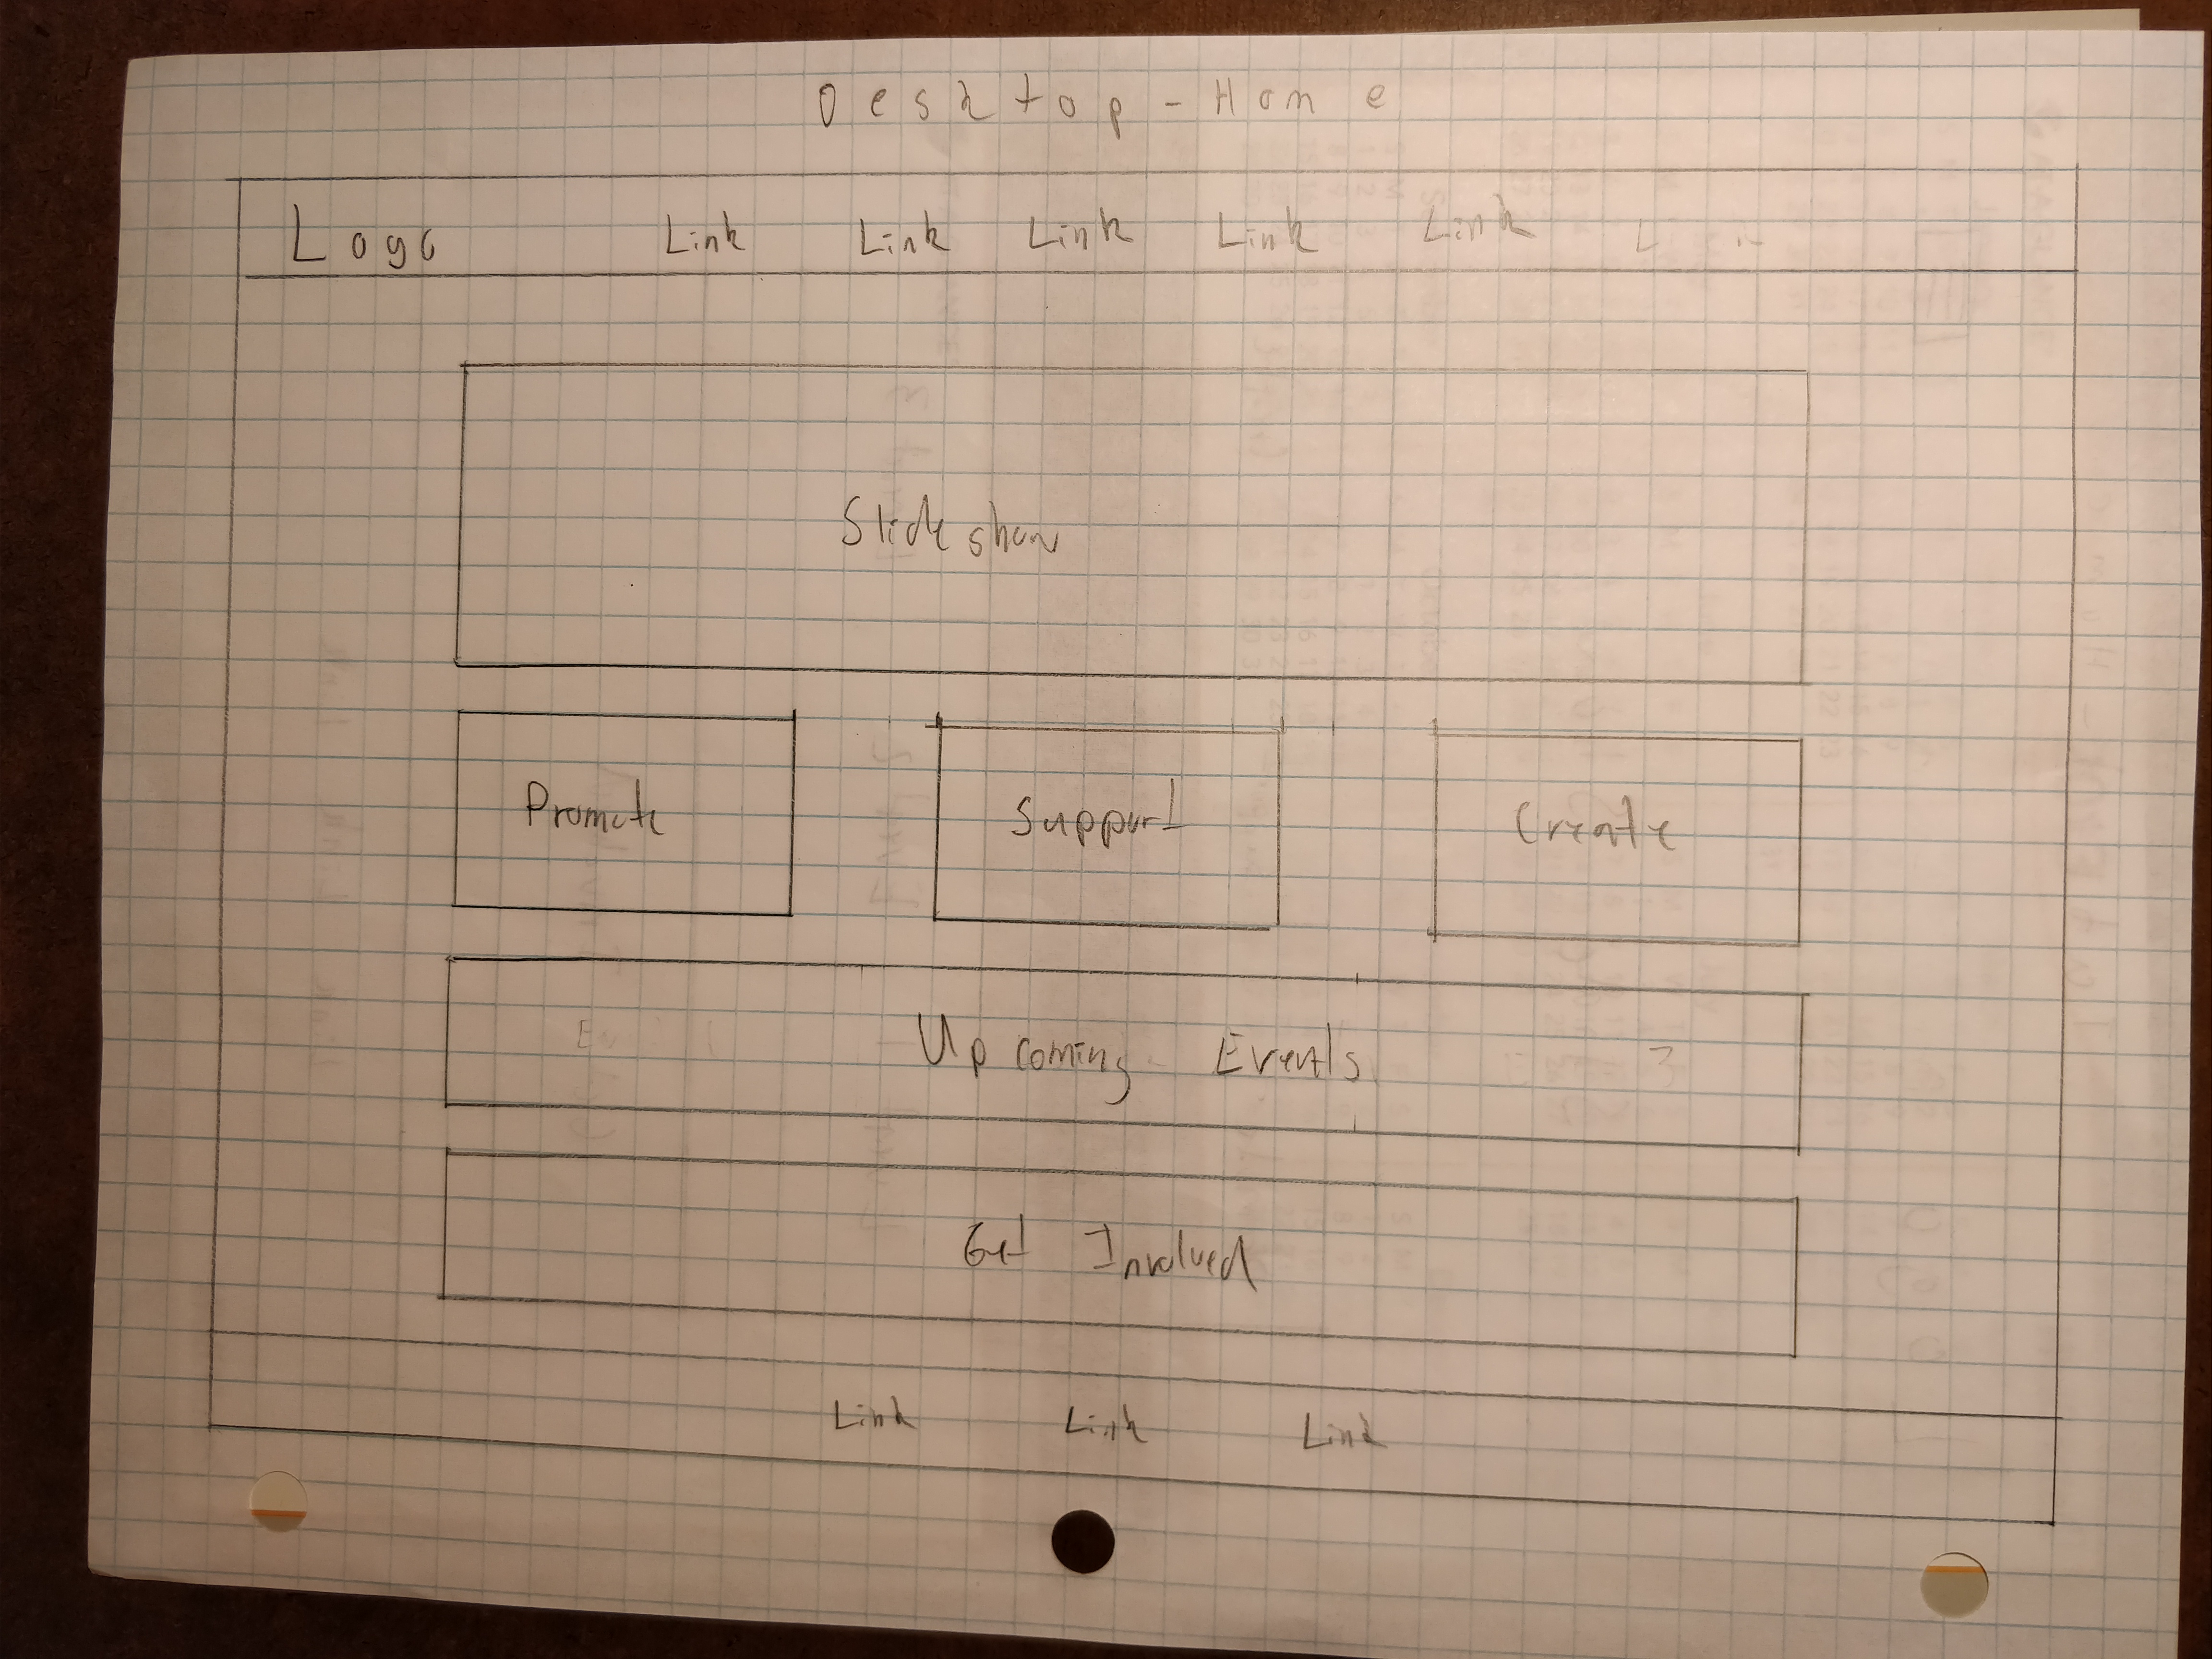 Desktop - Home
Logo Link Link Link Link Link
Slideshow
Promote Support Create
Upcoming Events
Get Involved
Link Link Link